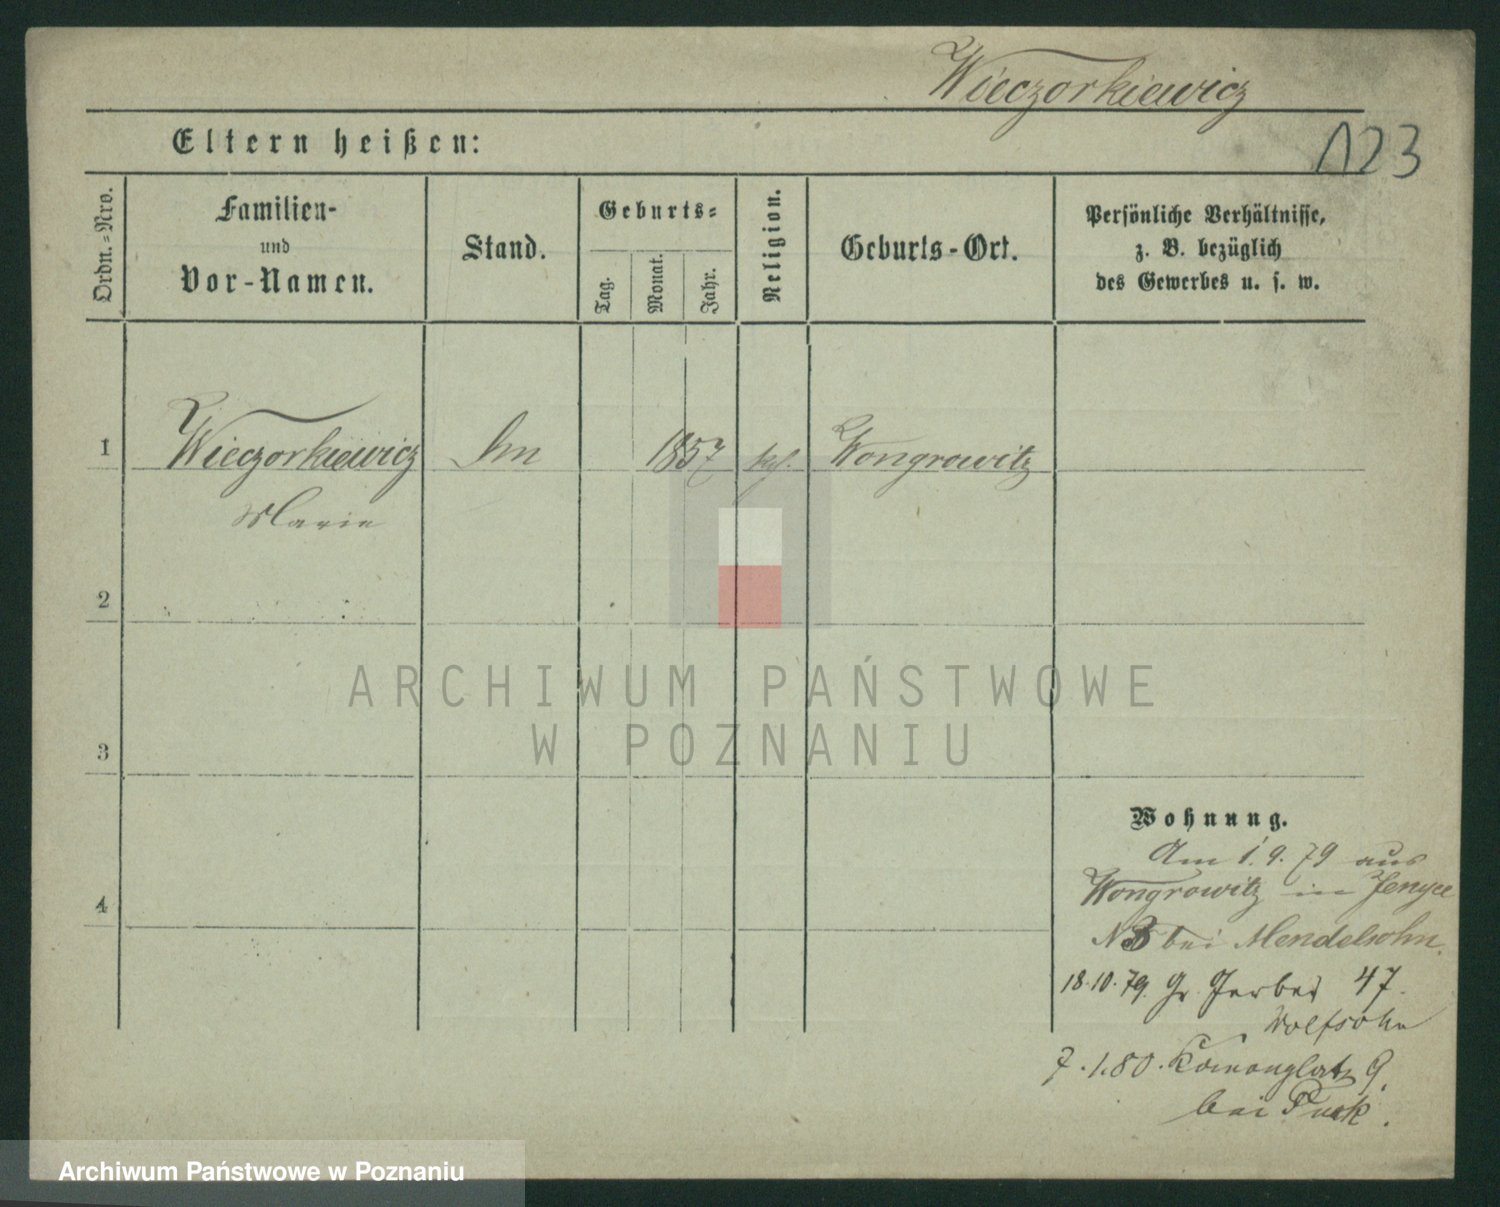 Wieczorkiewicz
123
Eltern heißen:
Ordn.-Nro.
Familien-
und
Vor-Namen.
Stand.
Geburts-
Tag.
Monat.
Jahr.
Religion.
Geburts-Ort.
Persönliche Verhältnisse,
z. B. bezüglich
des Gewerbes u. s. w.
1 Wieczorkiewicz 1857 Wongrowitz
Marie
2
ARCHIWUM PAŃSTWOWE
W POZNANIU
3
Wohnung.
Am 1.9.79 aus
Wongrowitz in
4
bei Mendelsohn.
18.10.79. Gr. Gerber 47.
Wolfsohn
7.1.80. 9.
bei
Archiwum Państwowe w Poznaniu